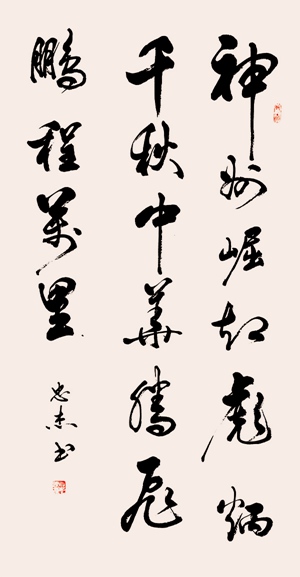 神州崛起彪炳
千秋中華騰飛
鵬程萬里
忠杰书